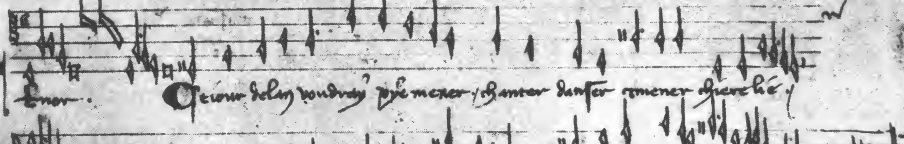 tenor . Ce iour de lan voudray joye mener , chanter danser et mener chiere lie ,